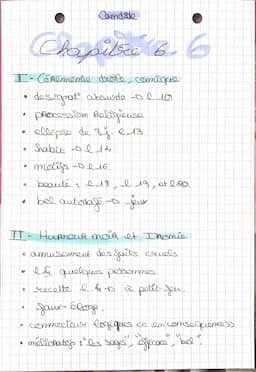 Candide
Chapitre 6
I - Cérémonie drôle, comique
• absurde → l 10
• procession Religieuse
• ellipse de 8 j. l.13
• habit → l 14
• motifs → l 16.
• beauté : l 18, l 19, et l 20.
• bel autodafé →
II - Humour noir et Ironie
• amusement des faits cruels
• l 5 quelques personnes
• recette l. à petit feu.
•
• connecteur logiques
• mélioratifs : "les sages", "efficace", "bel".